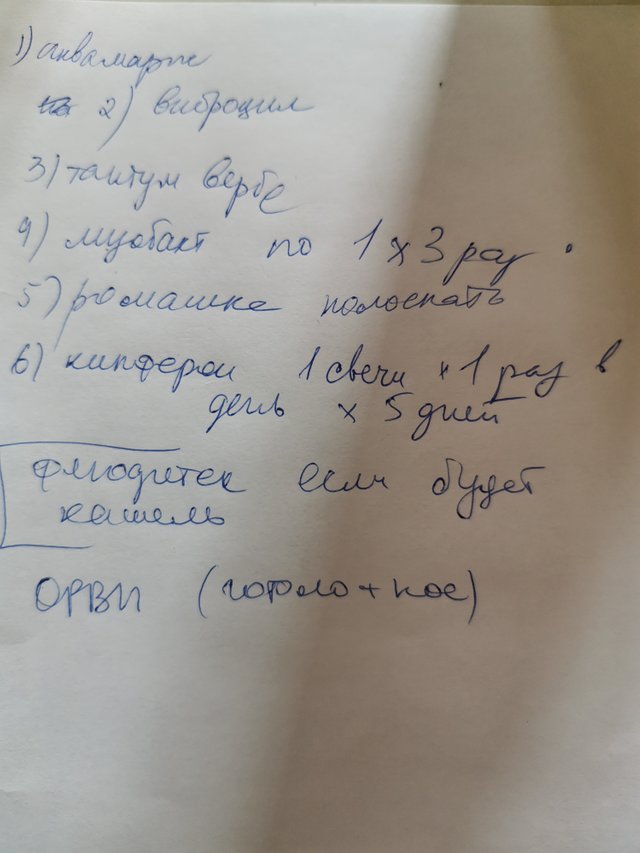 1) аквамарис
2) виброцил
3) тантум верде
4) лизобакт по 1 х 3 раз
5) ромашка полоскать
6) кипферон 1 свечи * 1 раз в
день х 5 дней
флюдитек если будет
кашель
ОРВИ (горло + нос)